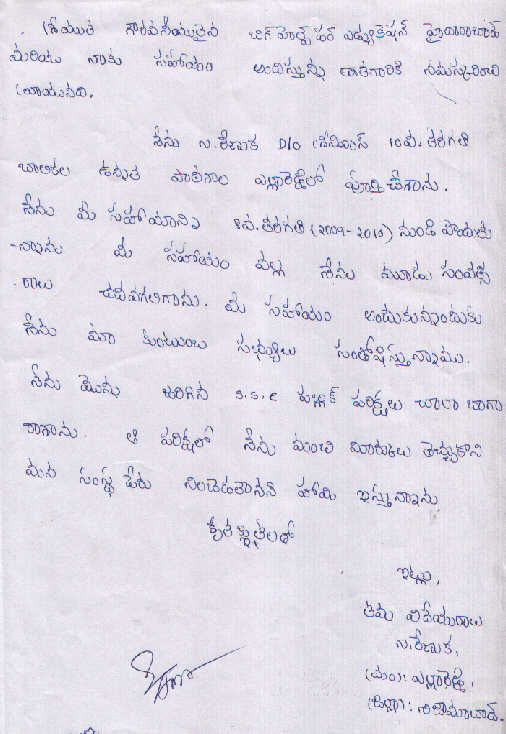 శ్రీయుత గౌరవనీయులైన బిగ్ హెల్ప్ ఫర్ ఎడ్యుకేషన్ హైదరాబాద్
మరియు నాకు సహాయం అందిస్తున్న దాతగారికి నమస్కరించి
వ్రాయునది.
నేను న.రేణుక D/o శ్రీనివాస్ 10వ. తరగతి
బాలికల ఉన్నత పాఠశాల ఎల్లారెడ్డిలో పూర్తి చేశాను.
నేను మీ సహాయాన్ని 8వ.తరగతి (2009-2010) నుండి పొందుతు
-న్నాను మీ సహాయం వల్ల నేను మూడు సంవత్స
-రాలు చదవగలిగాను. మీ సహాయం అందుకున్నందుకు
నేను మా కుటుంబ సభ్యులు సంతోషిస్తున్నాము.
నేను మొన్న జరిగిన S.S.C పబ్లిక్ పరీక్షలు చాలా బాగా
రాశాను. ఆ పరీక్షలో నేను మంచి మార్కులు తెచ్చుకొని
మన సంస్థ పేరు నిలబెడతానని హామి ఇస్తున్నాను
కృతజ్ఞతలతో
ఇట్లు,
తమ విధేయురాలు
న.రేణుక,
(మం): ఎల్లారెడ్డి,
(జిల్లా): నిజామాబాద్.